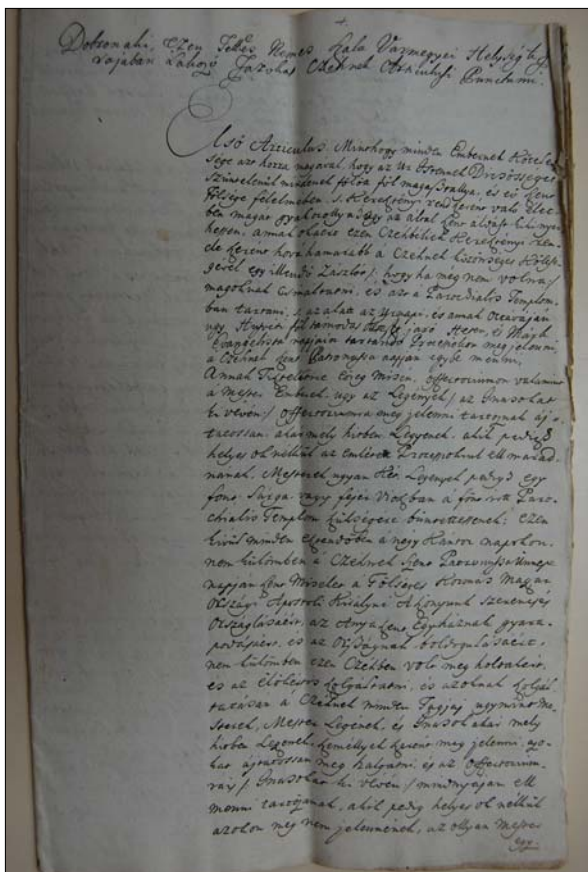 Dobronaki, Ezen Tettes Nemes Szala Varmegyei Helységb
vajában Lakozó Czehnek Articulusi Punctumi.
Elsö Articulus. Minthogy minden Embernek Köteles
sége azt hozza magával, hogy az Ur Istennek Dicsösséget
szüntelenül mindenek fölött föl magasztallya, és eö Szent
Fölsége felelmében, s. Keresztényi rendszerint való élet
ben magát gyakorollya,
képen, annak okáért ezen Czehbéliek Keresztényi
a Czehnek közönséges Költsé
gével egy illendö Zászlót /: hogy ha még nem volna
magoknak csináltatni, és azt a Parochialis Templom
ban tartani, s az alatt az Urnapi, és annak octáváján
ugy Husvéti föltámadás jaró Hetet, és Márk
Evangelista napjain tartandó Processiokor meg jelenni,
a Czehnek Szent Patronussa napján egybe menni,
Annak Tiszteletire Eöreg Misén, offertoriumon valamint
a Mester Emberek, ugy az Legények /: az Inasokat
ki vévén :/ offertoriumra meg jelenni tartozzanak áj
tatossan, akár mely hitben legyenek, akik pedig
helyes ok nélkül az emlétett Processiokrul ell marad
nának, Mesterek ugyan Két, Legények pedig egy
font Sárga vagy fejér Viaszban a fönt irtt Paro
chialis Templom szükségére büntettessenek; ezen
kivül minden esztendöben a négy Kántor napokon,
nem külömben a Czehnek Szent Patronussa Ünnep
napján Szent Miséket a Fölséges Koronás Magyar
Országi Apostoli Királyné Aszonyunk szerencsés
Országlásáért, az Anya Szent Egyháznak gyara
podásáért, és az Országnak boldogulásáért,
nem külömben ezen Czehben volt meg holtakért,
és az élökért szolgáltatni, és azoknak szolgál
tatásán a Czehnek minden Tagjai ugymint Me
sterek, Mester Legének, és Inasok akár mely
hitben legyenek, személlyek szerént meg jelenni,
kat ájtatossan meg halgatni, és az Offertorium
ra is /: Inasokat ki vévén :/ mindnyájan ell
menni tartozzanak, akik pedig helyes ok nélkül
azokon meg nem jelennének, az ollyan Mester
egy